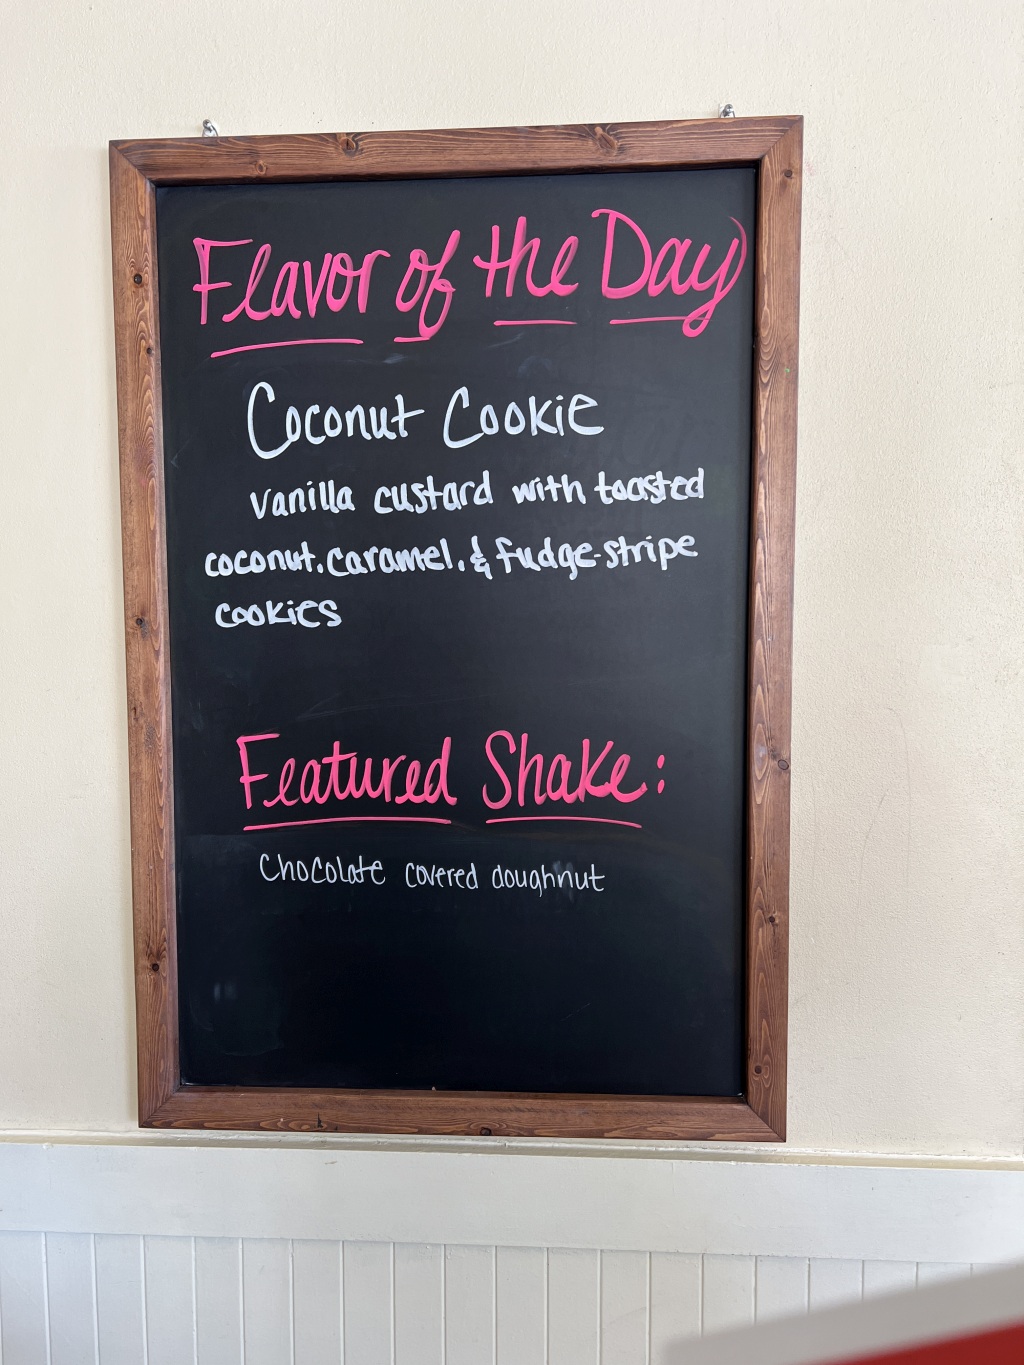 Flavor of the Day
Coconut Cookie
vanilla custard with toasted
coconut, caramel, & fudge-stripe
cookies
Featured Shake:
Chocolate covered doughnut